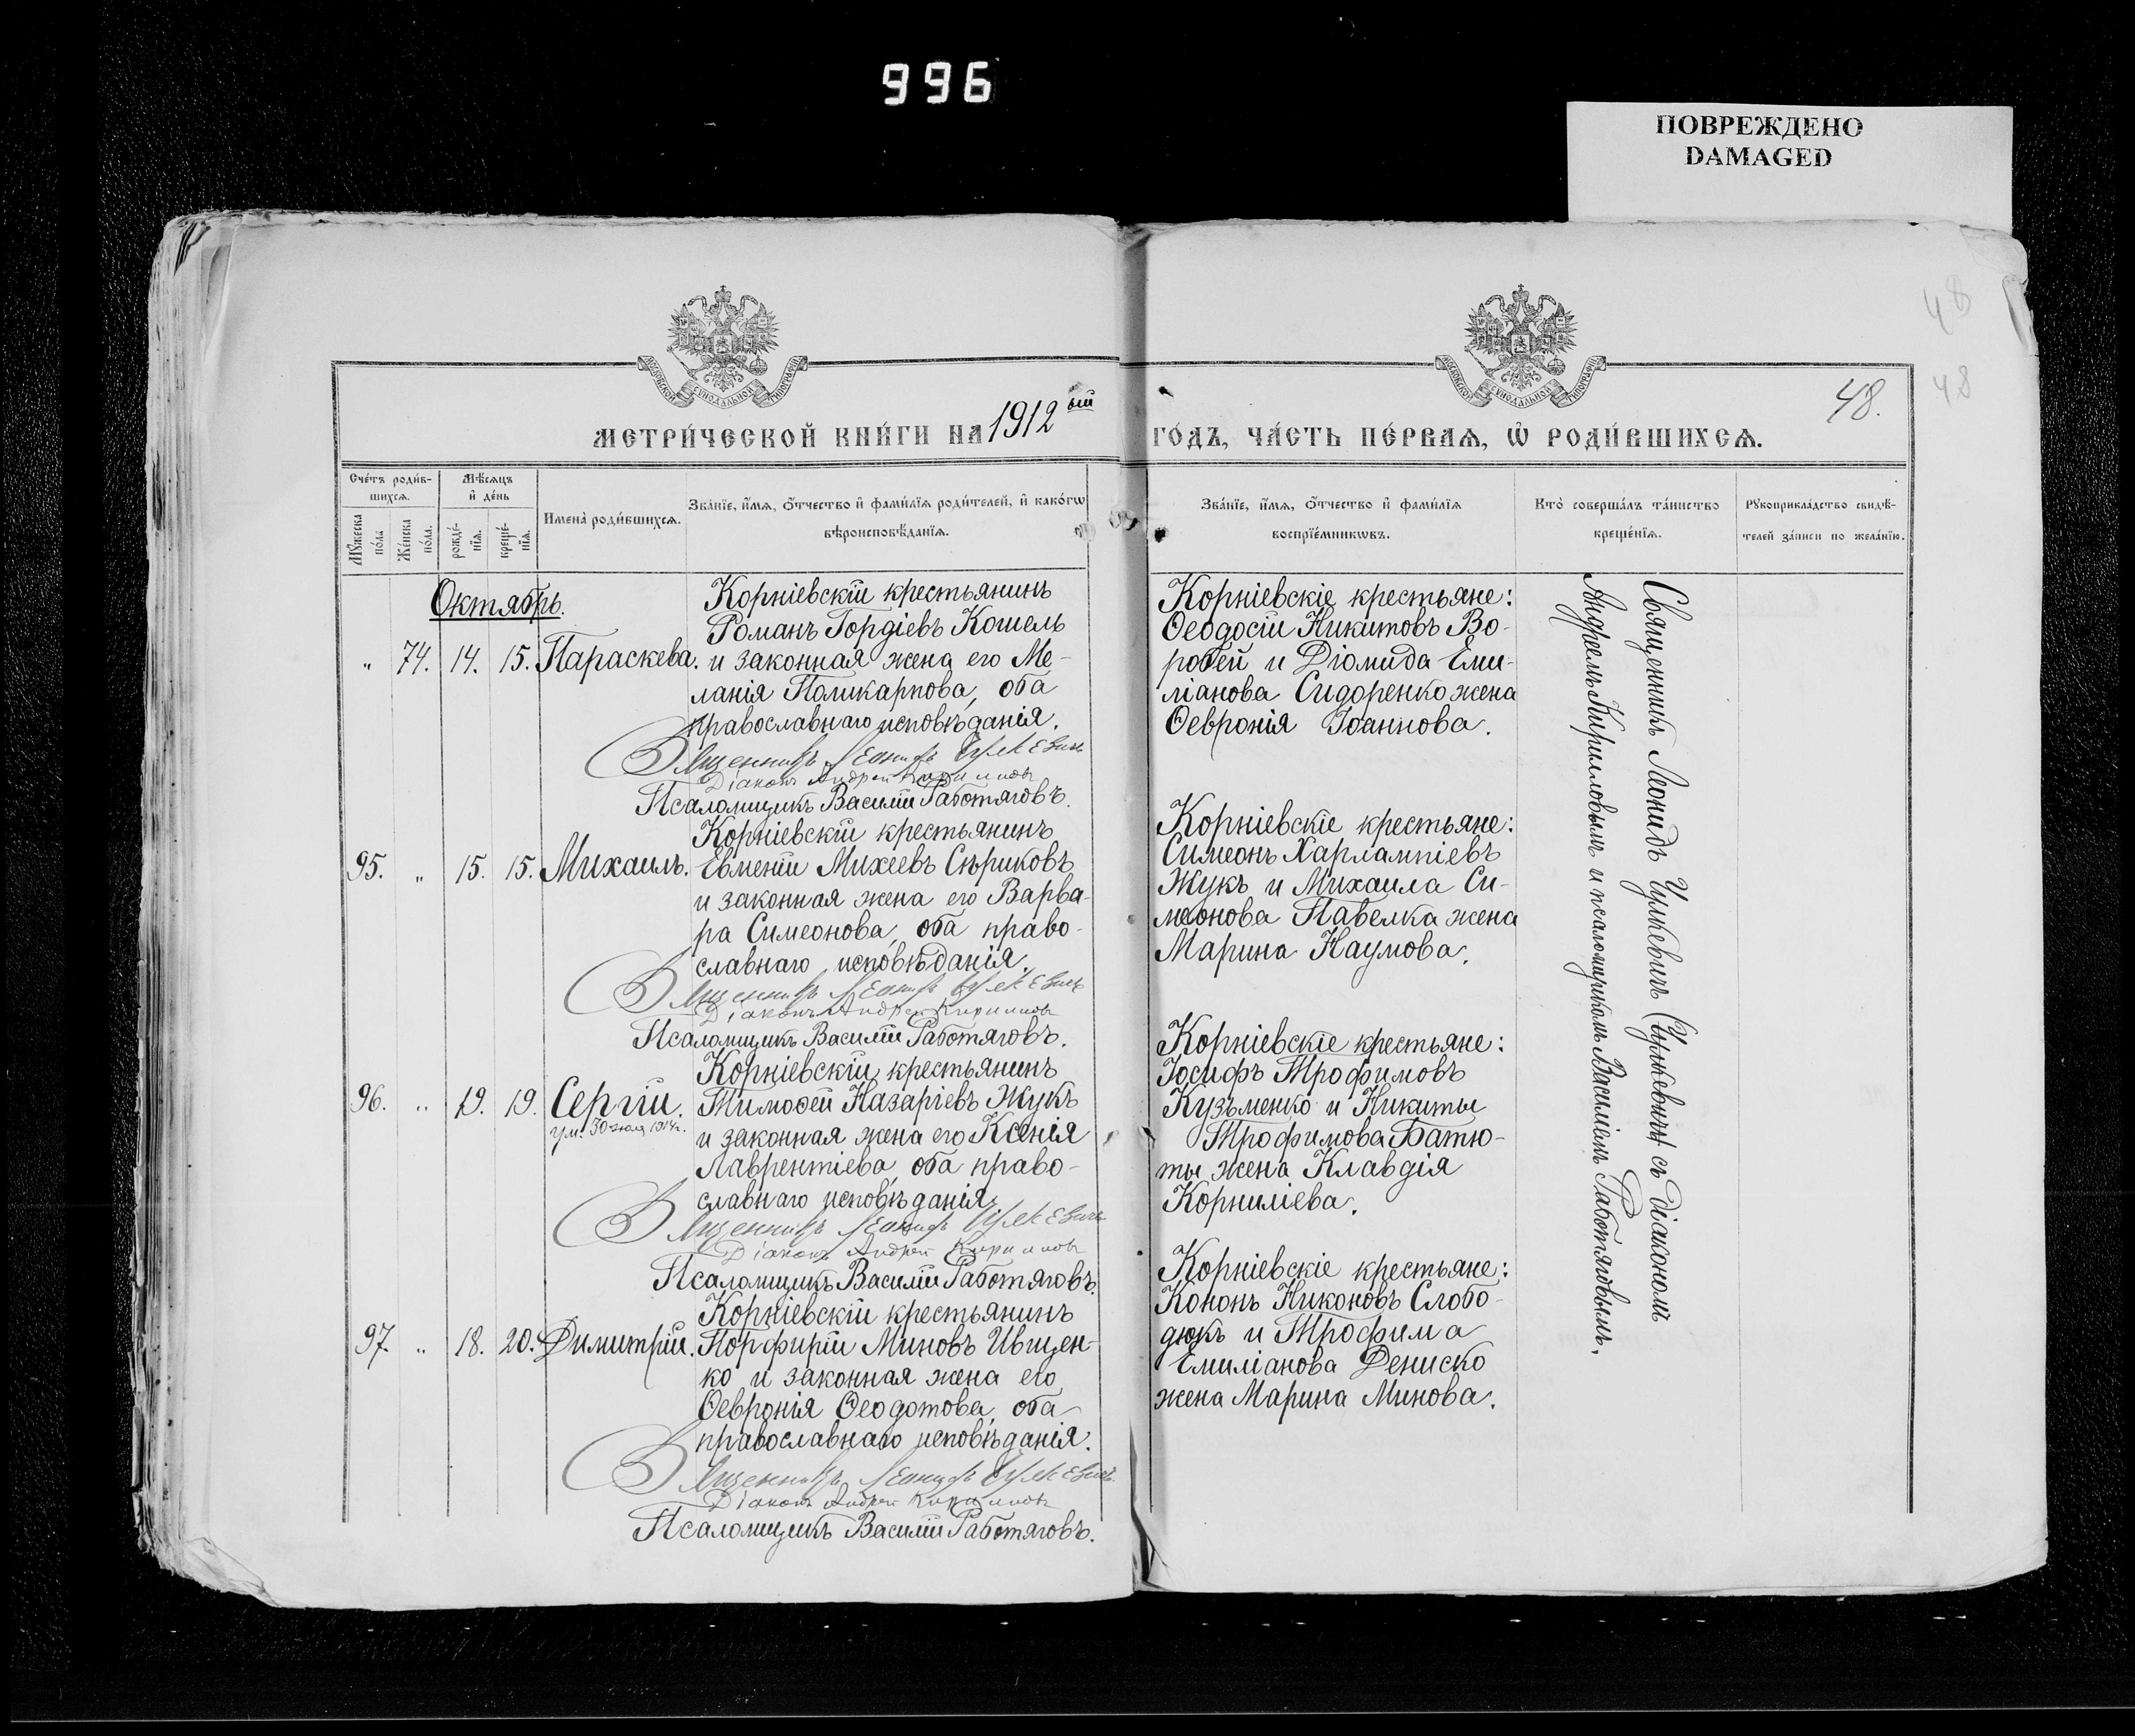 996
ПОВРЕЖДЕНО
DAMAGED
48
48
48.
МОСКОВСКОЙ СѴНОДАЛЬНОЙ ТИПОГРАФІИ
МОСКОВСКОЙ СѴНОДАЛЬНОЙ ТИПОГРАФІИ
МЕТРИ́ЧЕСКОЙ КНИ́ГИ НА 1912ый ГО́ДЪ, ЧА́СТЬ ПЕ́РВАѦ, Ѡ҆ РОДИ́ВШИХСѦ.
Сче́тъ роди́в-
шихсѧ.
Мꙋ́жеска
по́ла
Же́нска
по́ла.
Мѣ́сѧцъ
и҆ де́нь
рожде́-
нїѧ.
креще́-
нїѧ.
Имена̀ роди́вшихсѧ.
Зва́нїе, и҆́мѧ, ѻ҆́тчество и҆ фами́лїѧ роди́телей, и҆ како́гѡ
вѣроисповѣ́данїѧ.
Зва́нїе, и҆́мѧ, ѻ҆́тчество и҆ фами́лїѧ
воспрїе́мникѡвъ.
Кто̀ соверша́лъ та́инство
креще́нїѧ.
Рꙋкоприкла́дство свидѣ́-
телей за́писи по жела́нїю.
Октябрь.
" 74. 14. 15. Параскева.
Корніевскій крестьянинъ
Романъ Гордіевъ Кошель
и законная жена его Ме-
ланія Поликарпова, оба
православнаго исповѣданія.
Священникъ Леонидъ Цулкевичъ
Діаконъ Андрей Кирилловъ
Псаломщикъ Василій Работяговъ.
Корніевскіе крестьяне:
Ѳеодосій Никитовъ Во-
робей и Діомида Еми-
ліанова Сидоренко жена
Ѳевронія Іоаннова.
95. " 15. 15. Михаилъ.
Корніевскій крестьянинъ
Евменій Михеевъ Сѣриковъ
и законная жена его Варва-
ра Симеонова, оба право-
славнаго исповѣданія.
Священникъ Леонидъ Цулкевичъ
Діаконъ Андрей Кирилловъ
Псаломщикъ Василій Работяговъ.
Корніевскіе крестьяне:
Симеонъ Харлампіевъ
Жукъ и Михаила Си-
меонова Павелка жена
Марина Наумова.
96. " 19. 19. Сергій.
ум. 30 юля 1914г.
Корніевскій крестьянинъ
Тимоѳей Назаріевъ Жукъ
и законная жена его Ксенія
Лаврентіева, оба право-
славнаго исповѣданія.
Священникъ Леонидъ Цулкевичъ
Діаконъ Андрей Кирилловъ
Псаломщикъ Василій Работяговъ.
Корніевскіе крестьяне:
Іосифъ Трофимовъ
Кузьменко и Никиты
Трофимова Батю-
ты жена Клавдія
Корниліева.
97. " 18. 20. Димитрій.
Корніевскій крестьянинъ
Порфирій Миновъ Ивщен-
ко и законная жена его
Ѳевронія Ѳеодотова, оба
православнаго исповѣданія.
Священникъ Леонидъ Цулкевичъ
Діаконъ Андрей Кирилловъ
Псаломщикъ Василій Работяговъ.
Корніевскіе крестьяне:
Кононъ Никоновъ Слобо-
дюкъ и Трофима
Емиліанова Дениско
жена Марина Минова.
Священникъ Леонидъ съ діакономъ
Андреемъ Кирилловымъ и псаломщикомъ Василіемъ Работяговымъ.